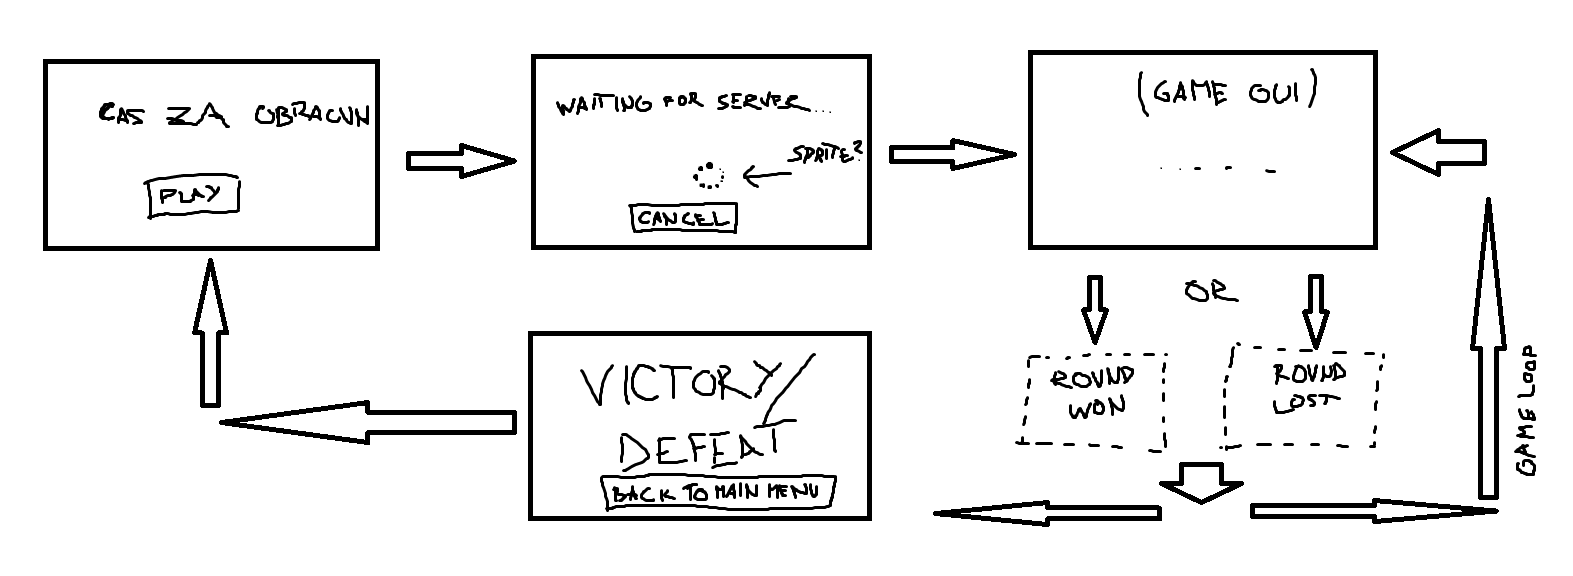 CAS ZA OBRACUN
PLAY
WAITING FOR SERVER...
SPRITE?
CANCEL
(GAME GUI)
OR
ROUND
WON
ROUND
LOST
GAME LOOP
VICTORY/
DEFEAT
BACK TO MAIN MENU